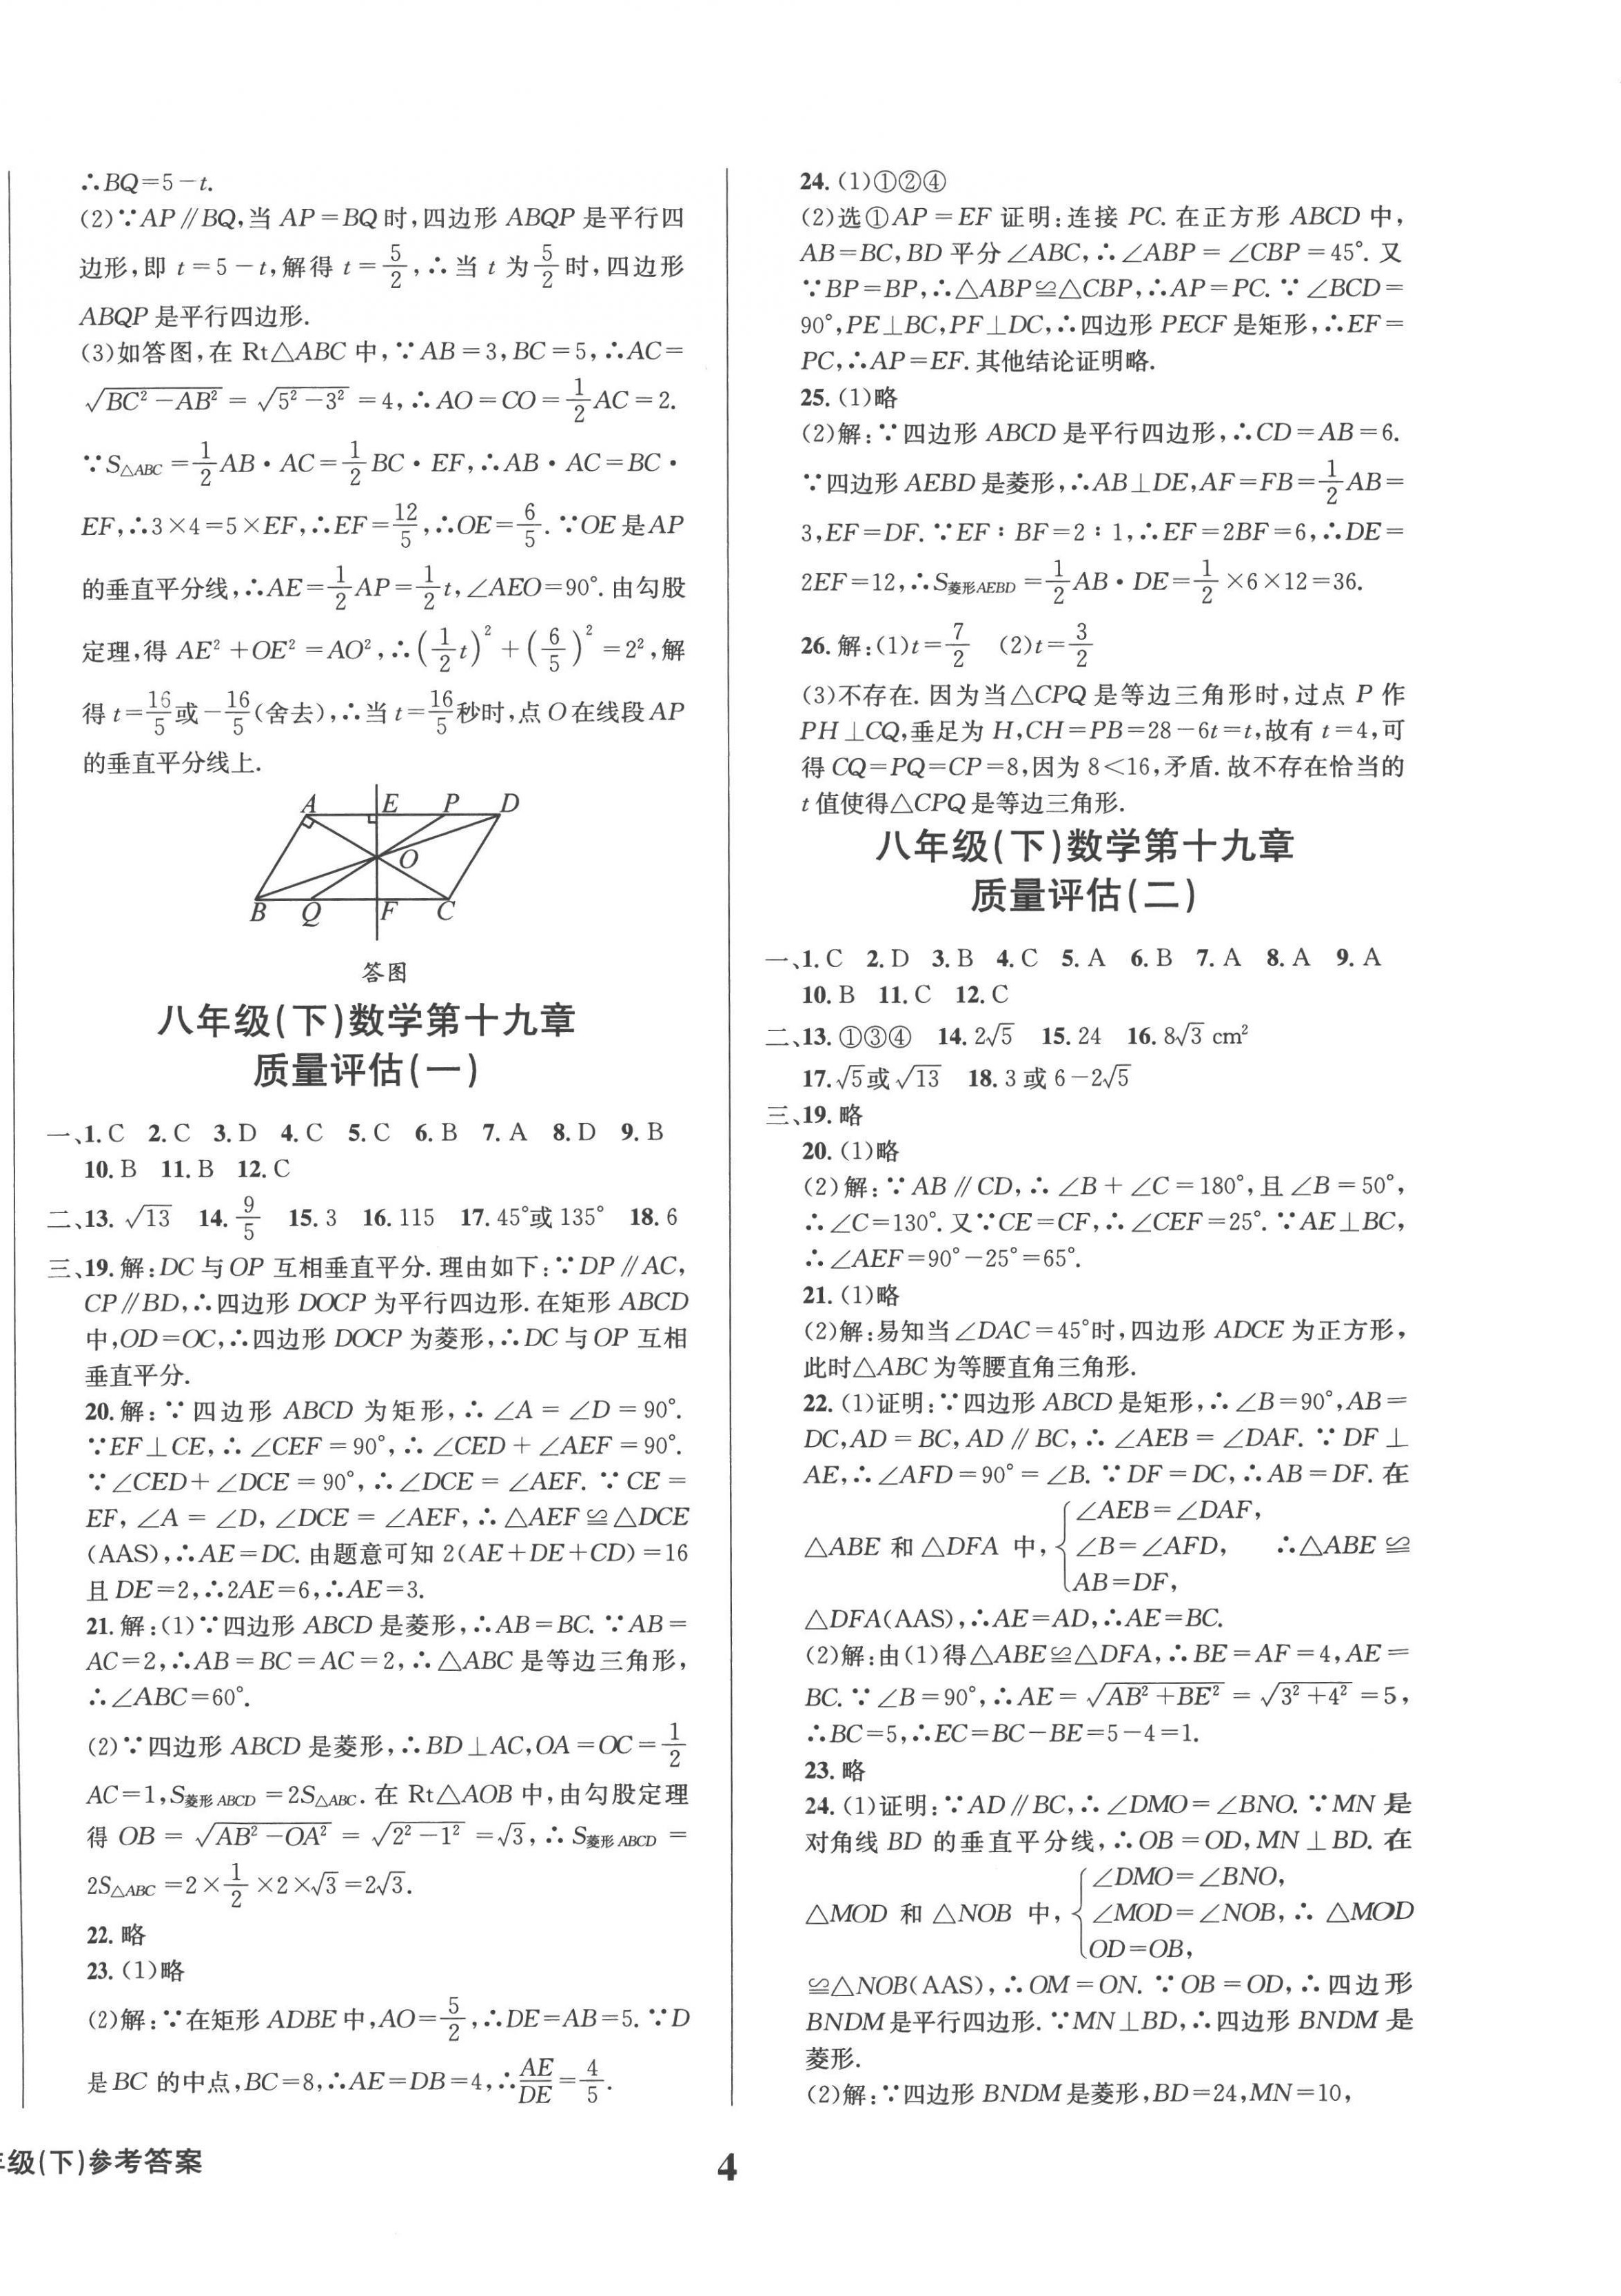 ∴BQ=5-t.
(2)∵AP∥BQ,当 AP=BQ 时,四边形 ABQP 是平行四
边形,即 t=5-t,解得 t=5/2,∴当 t 为5/2时,四边形
ABQP 是平行四边形.
(3)如答图,在 Rt△ABC 中,∵AB=3,BC=5,∴AC=
√(BC²-AB²)=√(5²-3²)=4,∴AO=CO=1/2AC=2.
∵S△ABC=1/2AB·AC=1/2BC·EF,∴AB·AC=BC·
EF,∴3×4=5×EF,∴EF=12/5,∴OE=6/5.∵OE 是 AP
的垂直平分线,∴AE=1/2AP=1/2t,∠AEO=90°.由勾股
定理,得 AE²+OE²=AO²,∴(1/2t)²+(6/5)²=2²,解
得 t=16/5或-16/5(舍去),∴当 t=16/5秒时,点 O 在线段 AP
的垂直平分线上.
A E P D
O
B Q F C
答图
八年级(下)数学第十九章
质量评估(一)
一、1.C 2.C 3.D 4.C 5.C 6.B 7.A 8.D 9.B
10.B 11.B 12.C
二、13.√13 14.9/5 15.3 16.115 17.45°或 135° 18.6
三、19.解:DC 与 OP 互相垂直平分.理由如下:∵DP∥AC,
CP∥BD,∴四边形 DOCP 为平行四边形.在矩形 ABCD
中,OD=OC,∴四边形 DOCP 为菱形,∴DC 与 OP 互相
垂直平分.
20.解:∵四边形 ABCD 为矩形,∴∠A=∠D=90°.
∵EF⊥CE,∴∠CEF=90°,∴∠CED+∠AEF=90°.
∵∠CED+∠DCE=90°,∴∠DCE=∠AEF.∵CE=
EF,∠A=∠D,∠DCE=∠AEF,∴△AEF≌△DCE
(AAS),∴AE=DC.由题意可知 2(AE+DE+CD)=16
且 DE=2,∴2AE=6,∴AE=3.
21.解:(1)∵四边形 ABCD 是菱形,∴AB=BC.∵AB=
AC=2,∴AB=BC=AC=2,∴△ABC 是等边三角形,
∴∠ABC=60°.
(2)∵四边形 ABCD 是菱形,∴BD⊥AC,OA=OC=1/2
AC=1,S菱形ABCD=2S△ABC.在 Rt△AOB 中,由勾股定理
得 OB=√(AB²-OA²)=√(2²-1²)=√3,∴S菱形ABCD=
2S△ABC=2×1/2×2×√3=2√3.
22.略
23.(1)略
(2)解:∵在矩形 ADBE 中,AO=5/2,∴DE=AB=5.∵D
是 BC 的中点,BC=8,∴AE=DB=4,∴AE/DE=4/5.
24.(1)①②④
(2)选①AP=EF 证明:连接 PC.在正方形 ABCD 中,
AB=BC,BD 平分∠ABC,∴∠ABP=∠CBP=45°.又
∵BP=BP,∴△ABP≌△CBP,∴AP=PC.∵∠BCD=
90°,PE⊥BC,PF⊥DC,∴四边形 PECF 是矩形,∴EF=
PC,∴AP=EF.其他结论证明略.
25.(1)略
(2)解:∵四边形 ABCD 是平行四边形,∴CD=AB=6.
∵四边形 AEBD 是菱形,∴AB⊥DE,AF=FB=1/2AB=
3,EF=DF.∵EF∶BF=2∶1,∴EF=2BF=6,∴DE=
2EF=12,∴S菱形AEBD=1/2AB·DE=1/2×6×12=36.
26.解:(1)t=7/2 (2)t=3/2
(3)不存在.因为当△CPQ 是等边三角形时,过点 P 作
PH⊥CQ,垂足为 H,CH=PB=28-6t=t,故有 t=4,可
得 CQ=PQ=CP=8,因为 8<16,矛盾.故不存在恰当的
t 值使得△CPQ 是等边三角形.
八年级(下)数学第十九章
质量评估(二)
一、1.C 2.D 3.B 4.C 5.A 6.B 7.A 8.A 9.A
10.B 11.C 12.C
二、13.①③④ 14.2√5 15.24 16.8√3 cm²
17.√5或√13 18.3 或 6-2√5
三、19.略
20.(1)略
(2)解:∵AB∥CD,∴∠B+∠C=180°,且∠B=50°,
∴∠C=130°.又∵CE=CF,∴∠CEF=25°.∵AE⊥BC,
∴∠AEF=90°-25°=65°.
21.(1)略
(2)解:易知当∠DAC=45°时,四边形 ADCE 为正方形,
此时△ABC 为等腰直角三角形.
22.(1)证明:∵四边形 ABCD 是矩形,∴∠B=90°,AB=
DC,AD=BC,AD∥BC,∴∠AEB=∠DAF.∵DF⊥
AE,∴∠AFD=90°=∠B.∵DF=DC,∴AB=DF.在
∠AEB=∠DAF,
△ABE 和△DFA 中,{∠B=∠AFD, ∴△ABE≌
AB=DF,
△DFA(AAS),∴AE=AD,∴AE=BC.
(2)解:由(1)得△ABE≌△DFA,∴BE=AF=4,AE=
BC.∵∠B=90°,∴AE=√(AB²+BE²)=√(3²+4²)=5,
∴BC=5,∴EC=BC-BE=5-4=1.
23.略
24.(1)证明:∵AD∥BC,∴∠DMO=∠BNO.∵MN 是
对角线 BD 的垂直平分线,∴OB=OD,MN⊥BD.在
∠DMO=∠BNO,
△MOD 和△NOB 中,{∠MOD=∠NOB,∴△MOD
OD=OB,
≌△NOB(AAS),∴OM=ON.∵OB=OD,∴四边形
BNDM 是平行四边形.∵MN⊥BD,∴四边形 BNDM 是
菱形.
(2)解:∵四边形 BNDM 是菱形,BD=24,MN=10,
级(下)参考答案
4